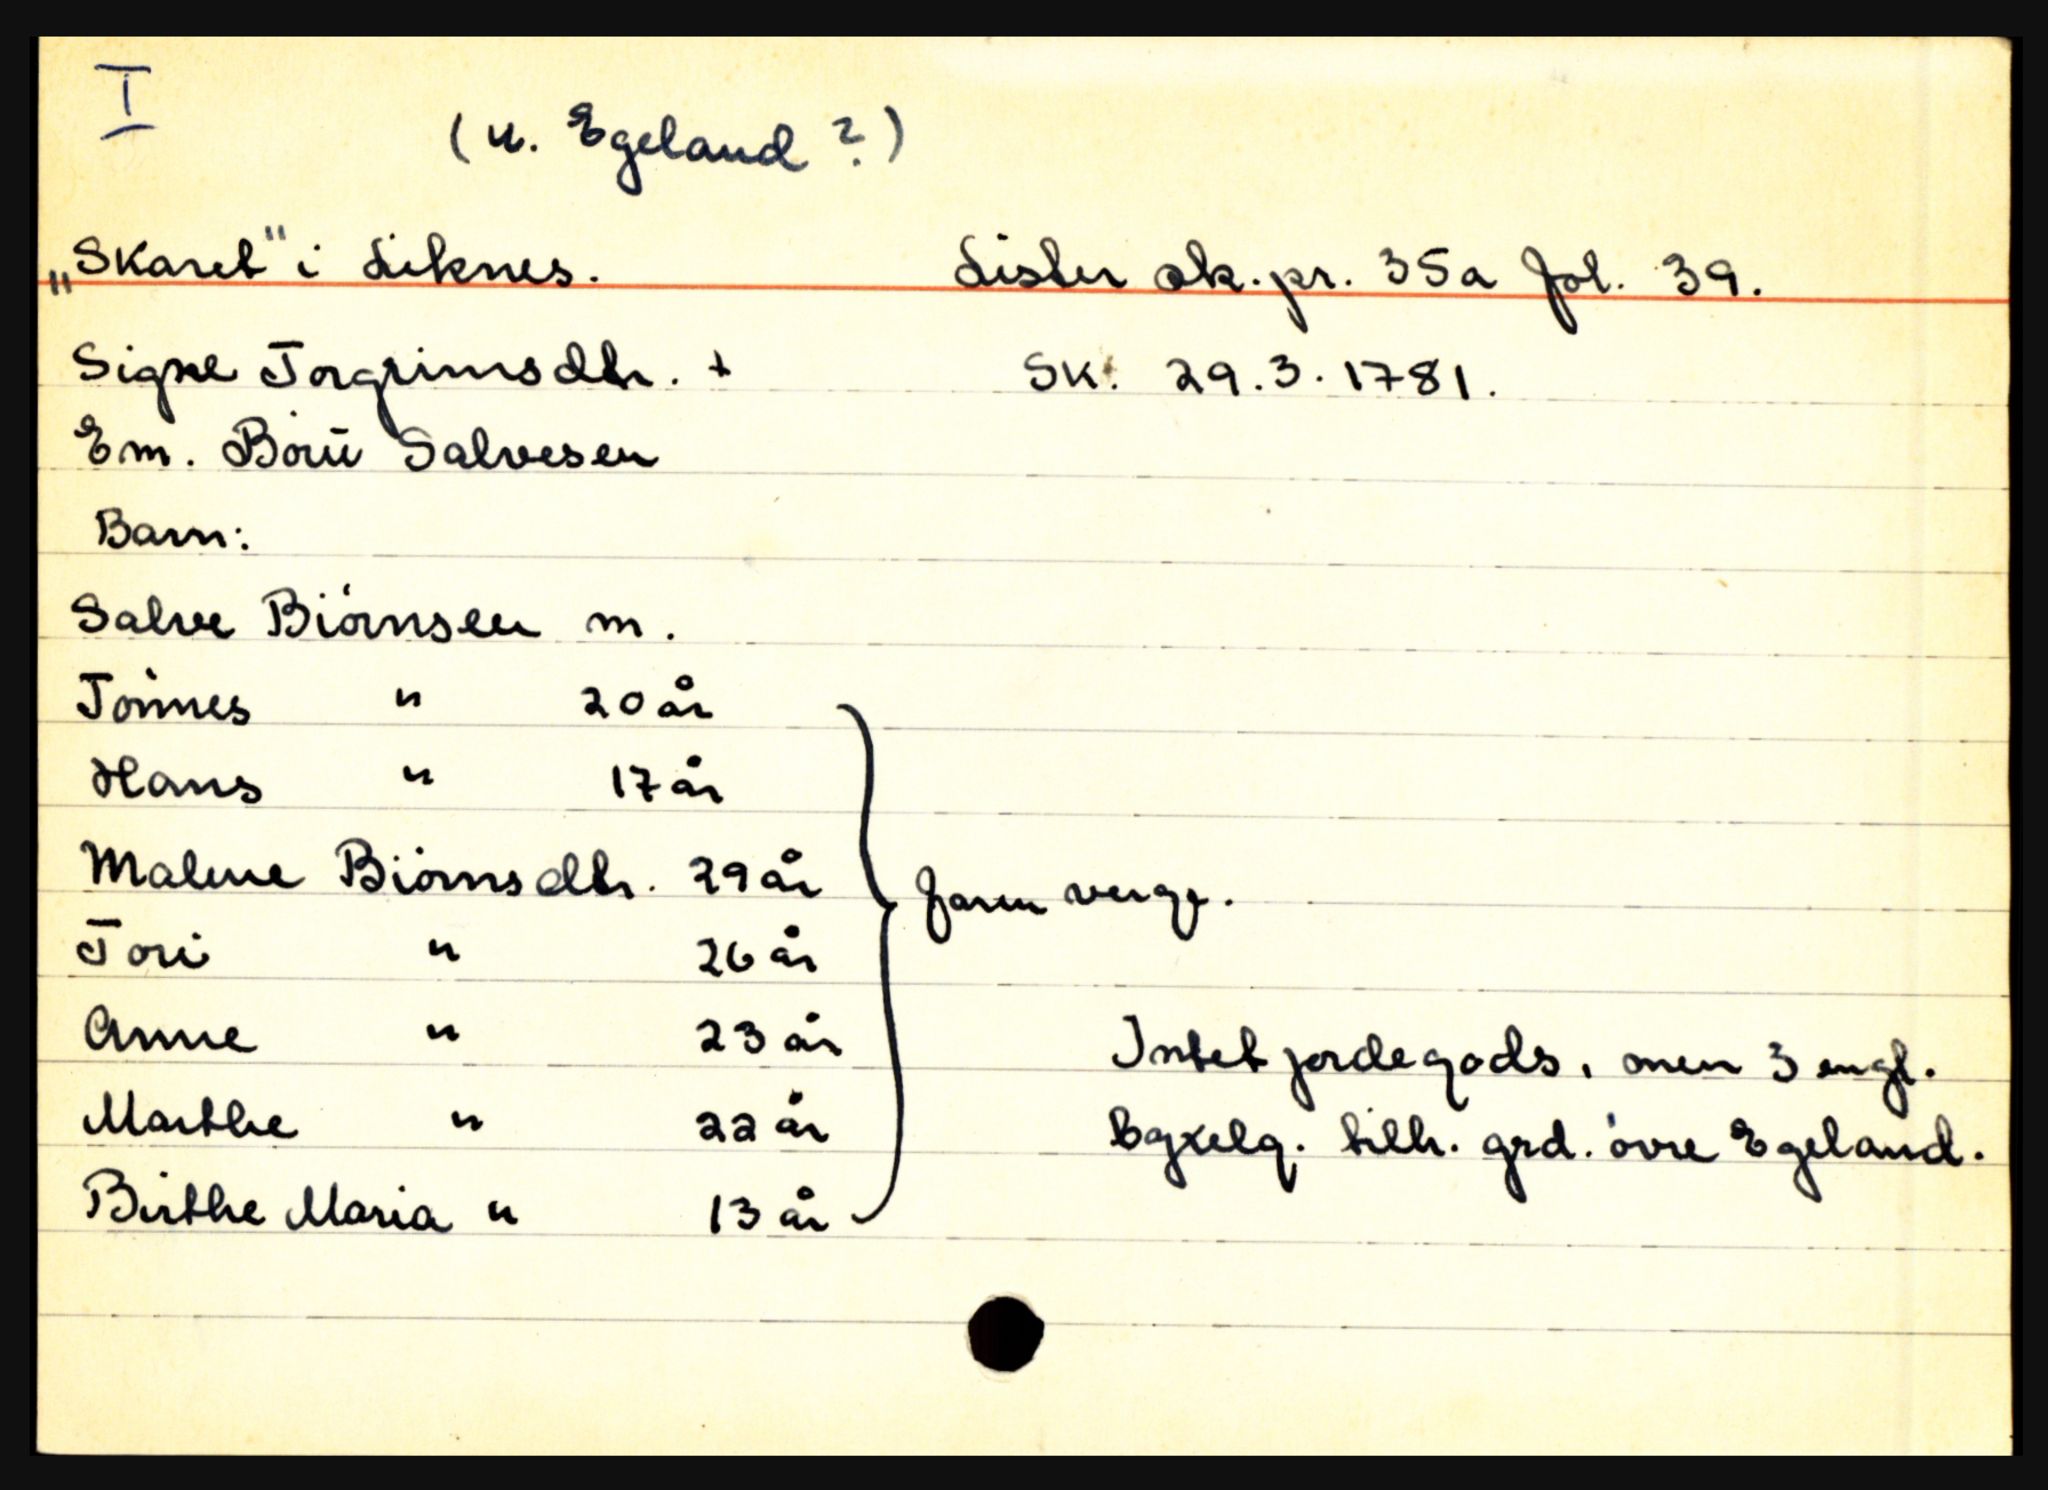 I
(u. Egeland ?)
„Skaret" i Liknes. Lister sk.pr. 35a fol. 39.
Signe Torgrimsdtr. + Sk. 29.3.1781.
Em. Börn Salvesen
Barn:
Salve Biörnsen m.
Tönnes " 20 år
Hans " 17 år
Malene Biörnsdtr. 29 år
Tori " 26 år
faren verge.
Anne " 23 år
Marthe " 22 år
Birthe Maria " 13 år
Intet jordegods, men 3 engl.
bgxelg. tilh. grd. övre Egeland.